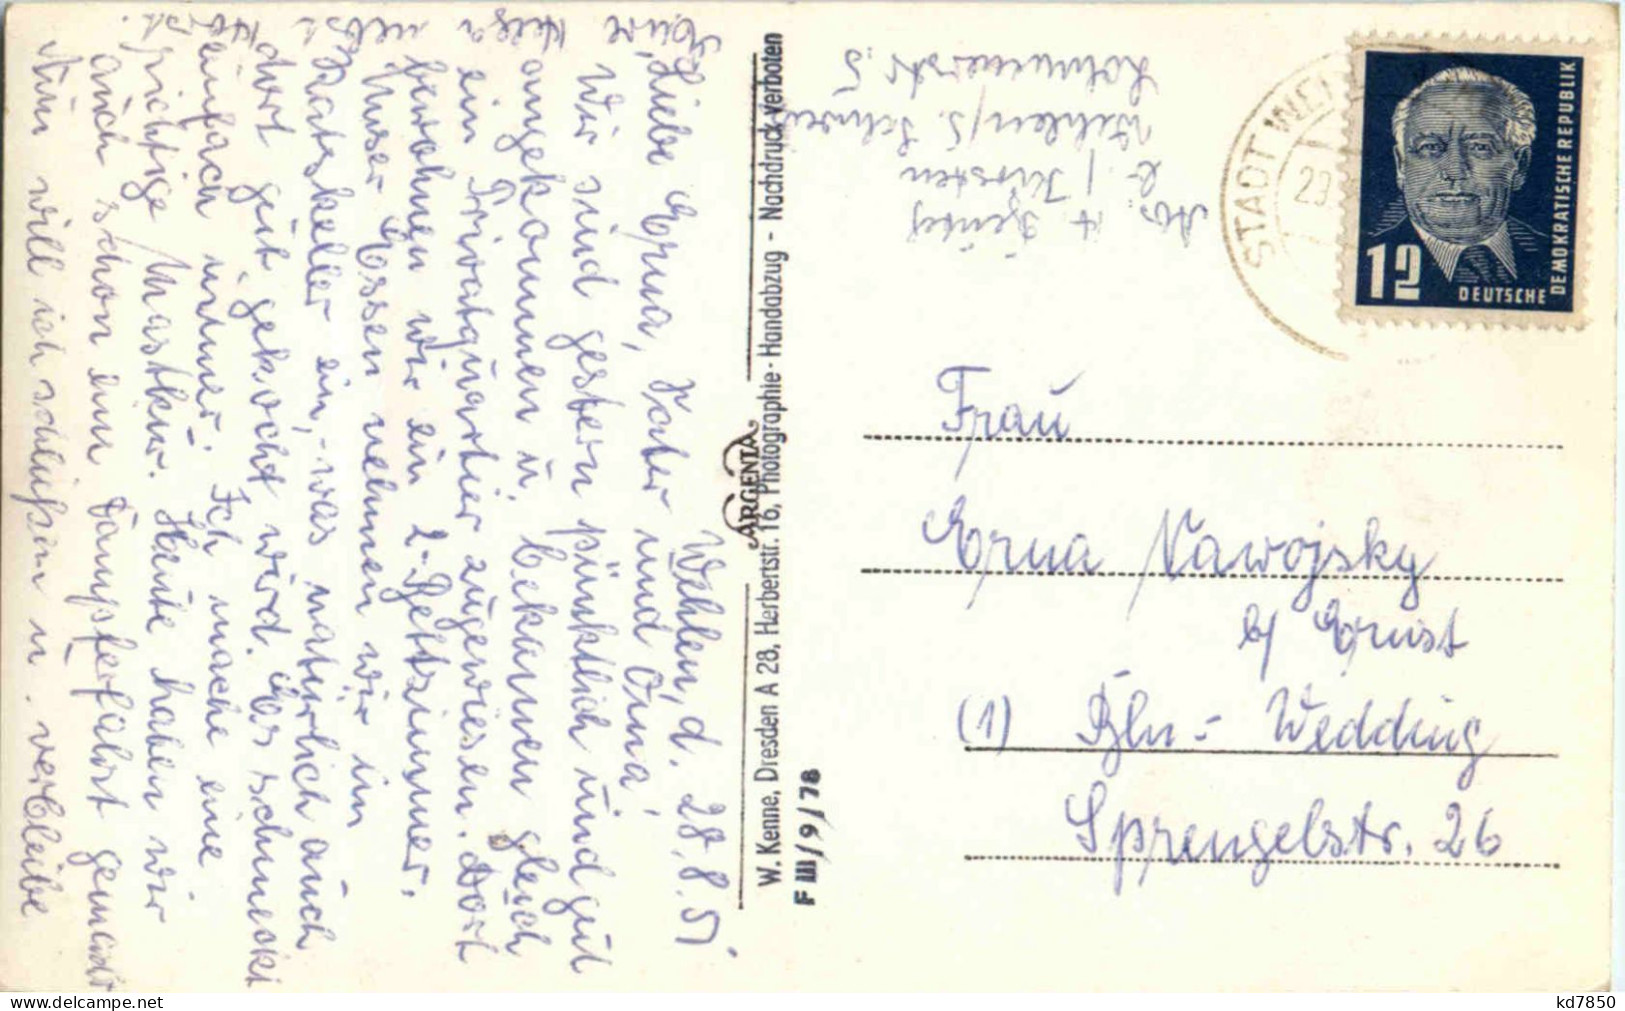 Wehlen, d. 28.8.51
Liebe Erna, Vater und Oma!
Wir sind gestern pünktlich und gut
angekommen u. bekamen gleich
ein Privatquartier zugewiesen. Dort
bewohnen wir ein 2-Bettzimmer.
Unser Essen nehmen wir im
Ratskeller ein, - was natürlich auch
dort gut gekocht wird. Es schmeckt
einfach immer. Ich mache eine
richtige Mastkur. Heute haben wir
auch schon eine Dampferfahrt gemacht
Nun will ich schließen u. verbleibe
Eure Helga nebst
Horst.
W. Kenne, Dresden A 28, Herbertstr. 16, Photographie - Handabzug - Nachdruck verboten
ARGENTA
F III/9/78
Abs. H.
b/ Kirsten
Wehlen/S. Schweiz
Lohmenerstr. 5
STADT WEHLEN
29.
12
DEUTSCHE
DEMOKRATISCHE REPUBLIK
Frau
Erna Nawojsky
b/ Ernst
(1) Bln.- Wedding
Sprengelstr. 26
kd7850